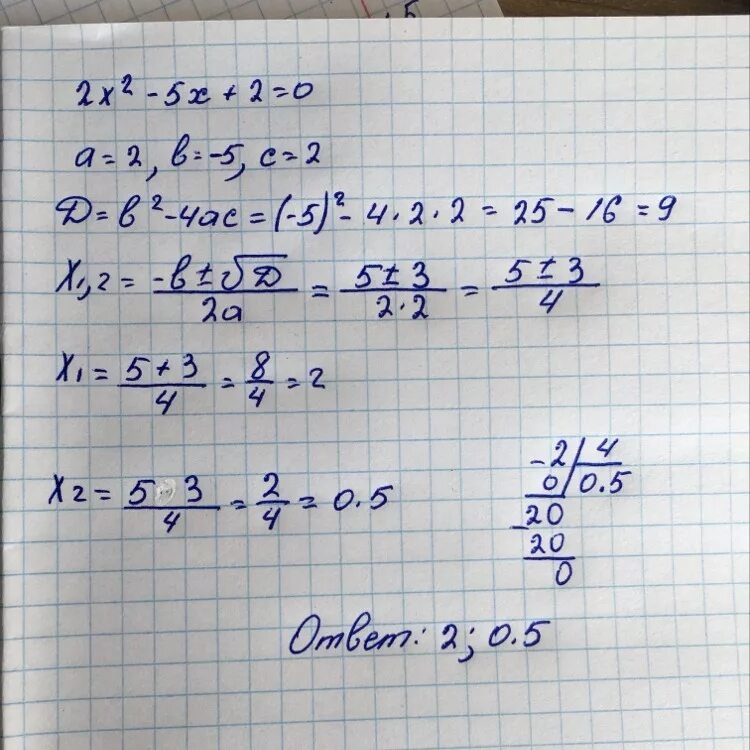 2x² - 5x + 2 = 0
a = 2, b = -5, c = 2
Д = b² - 4ac = (-5)² - 4 · 2 · 2 = 25 - 16 = 9
X₁,₂ = (-b ± √Д)/(2a) = (5 ± 3)/(2 · 2) = (5 ± 3)/4
X₁ = (5 + 3)/4 = 8/4 = 2
X₂ = (5 3)/4 = 2/4 = 0.5
-2 | 4
0 | 0.5
-20
20
0
Ответ: 2; 0.5